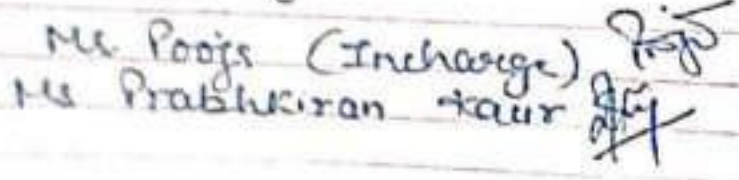 Ms Pooja (Incharge)
Ms Prabhkiran Kaur